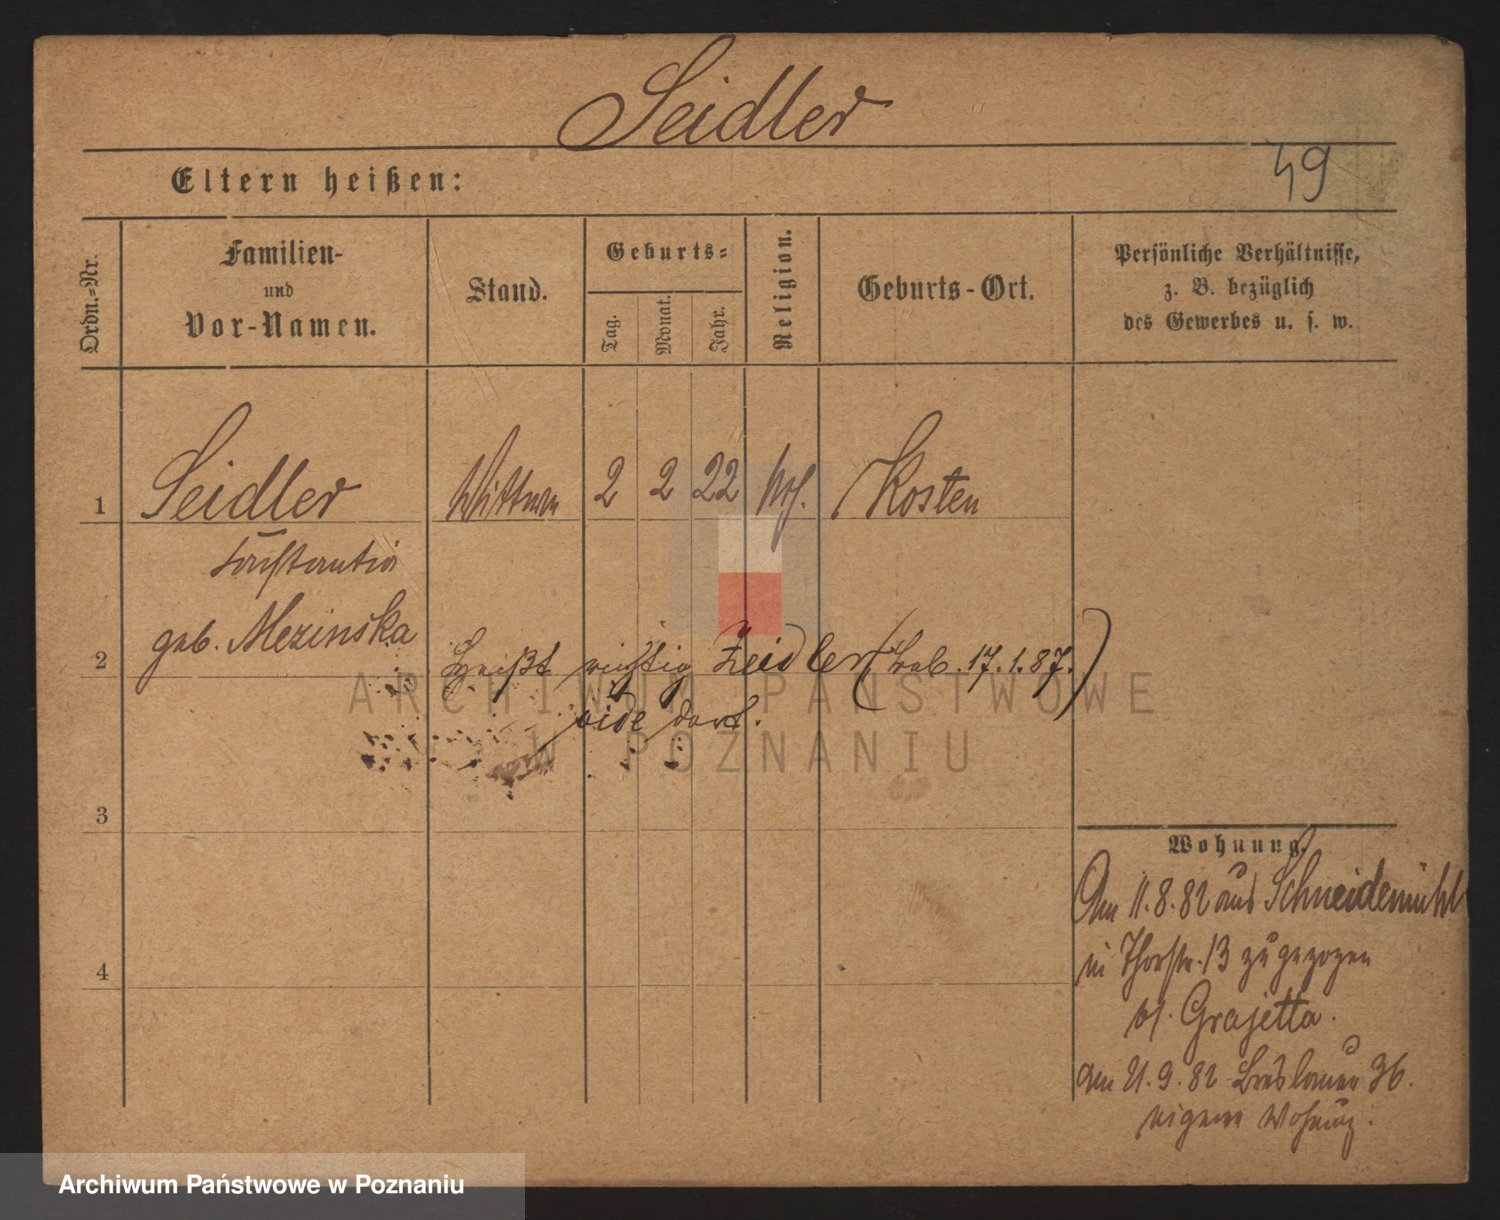 Seidler
49
Eltern heißen:
Ordn.-Nr.
Familien-
und
Vor-Namen.
Stand.
Geburts-
Tag.
Monat.
Jahr.
Religion.
Geburts-Ort.
Persönliche Verhältnisse,
z. B. bezüglich
des Gewerbes u. s. w.
1 Seidler Wittwe 2 2 22 Kosten
Constantia
geb. Mezinska
2 Heißt richtig Zeidler ( 17.1.87.)
vide dort.
3
4
Wohnung.
Am 11.8.82 aus Schneidemühl
in Thorstr. 13 zugezogen
bei Grajetta.
Am 21.9.82 Breslauer 36.
eigene Wohnung.
ARCHIWUM PAŃSTWOWE
W POZNANIU
Archiwum Państwowe w Poznaniu